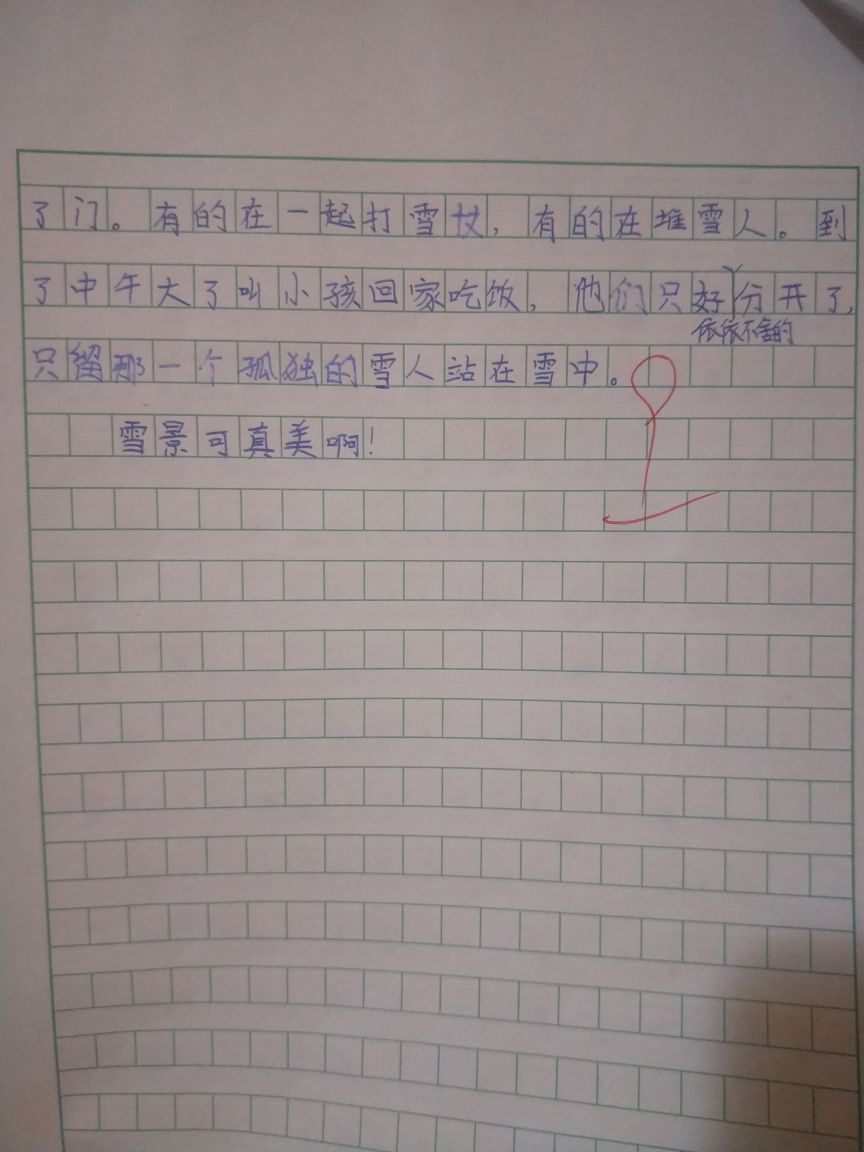 了门。有的在一起打雪仗，有的在堆雪人。到
了中午大了叫小孩回家吃饭，他们只好分开了，
依依不舍的
只留那一个孤独的雪人站在雪中。
雪景可真美啊！